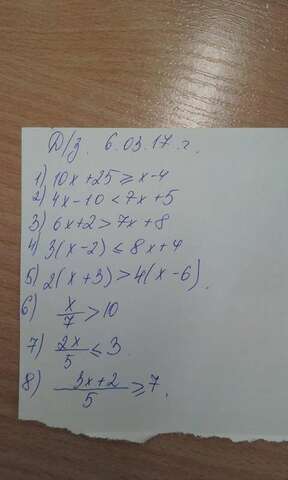 Д/з. 6.03.17.г.
1) 10x+25 ≥ x-4
2) 4x-10 < 7x+5
3) 6x+2 > 7x+8
4) 3(x-2) ≤ 8x+4
5) 2(x+3) > 4(x-6).
6) x/7 > 10
7) 2x/5 ≤ 3.
8) 3x+2/5 ≥ 7.